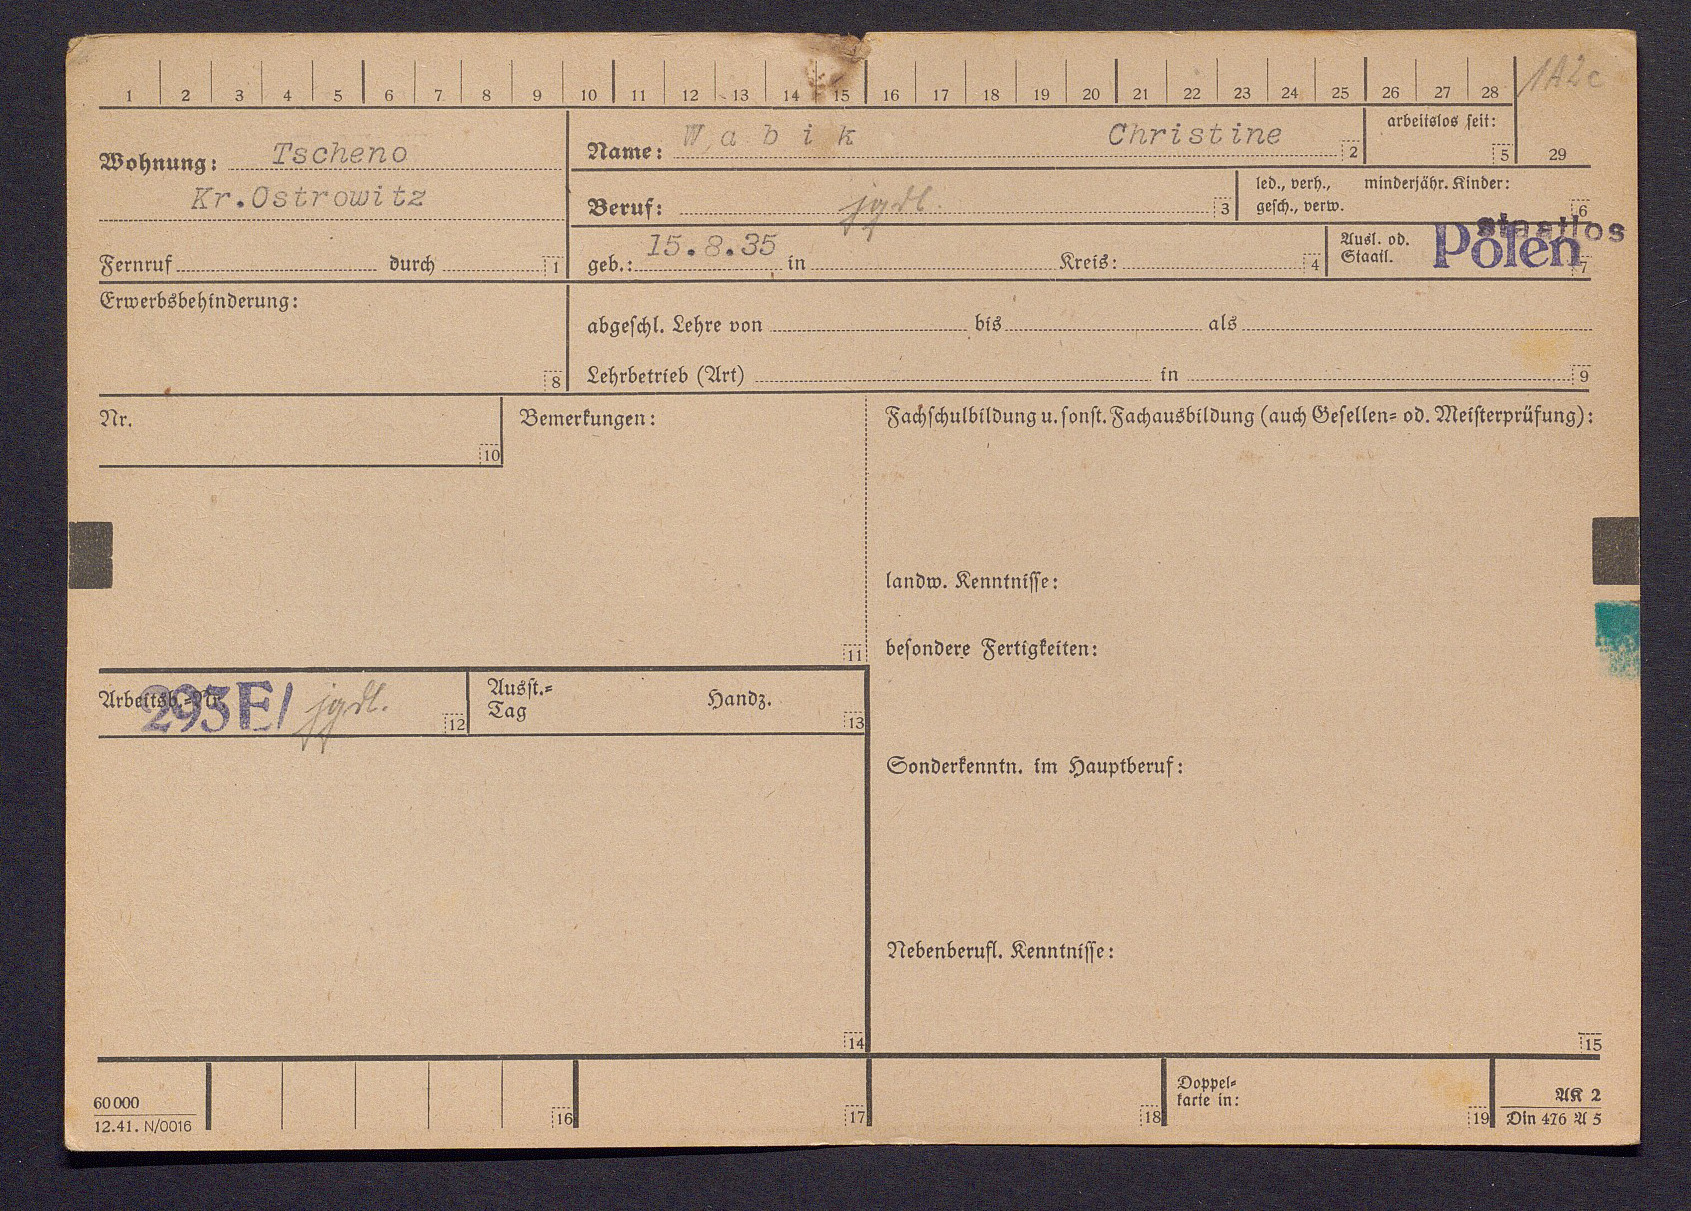 1 2 3 4 5 6 7 8 9 10 11 12 13 14 15 16 17 18 19 20 21 22 23 24 25 26 27 28 1A2c
Wohnung: Tscheno
Kr.Ostrowitz
Fernruf durch 1
Name: Wabik Christine 2
arbeitslos seit: 5
29
Beruf: jgdl. 3
led., verh., minderjähr. Kinder:
gesch., verw. 6
geb.: 15.8.35 in Kreis: 4
Ausl. od.
Staatl. Polen staatlos 7
Erwerbsbehinderung: 8
abgeschl. Lehre von bis als
Lehrbetrieb (Art) in 9
Nr. 10
Bemerkungen: 11
Fachschulbildung u. sonst. Fachausbildung (auch Gesellen= od. Meisterprüfung):
landw. Kenntnisse:
besondere Fertigkeiten:
Arbeitsb.=Nr. 293E/ jgdl. 12
Ausst.=
Tag Handz. 13
Sonderkenntn. im Hauptberuf:
Nebenberufl. Kenntnisse:
14 15
60 000
12.41. N/0016
16 17 18
Doppel=
karte in: 19
AK 2
Din 476 A 5